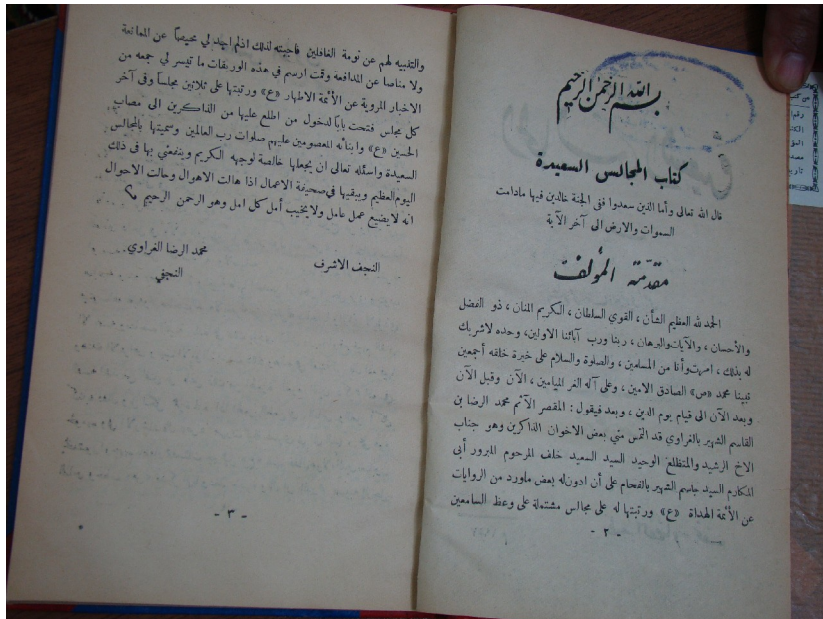 بسم الله الرحمن الرحيم
كتاب المجالس السعيدة
قال الله تعالى وأما الذين سعدوا ففي الجنة خالدين فيها مادامت
السموات والارض الى آخر الآية
مقدمة المؤلف
الحمد لله العظيم الشأن ، القوي السلطان ، الكريم المنان ، ذو الفضل
والأحسان ، والآيات والبرهان ، ربنا ورب آبائنا الاولين ، وحده لاشريك
له بذلك ، امرت وأنا من المسلمين ، والصلوة والسلام على خيرة خلقه أجمعين
نبينا محمد «ص» الصادق الامين ، وعلى آله الغر الميامين ، الآن وقبل الآن
وبعد الآن الى قيام يوم الدين ، وبعد فيقول : المقصر الآثم محمد الرضا بن
القاسم الشهير بالغراوي قد التمس مني بعض الاخوان الذاكرين وهو جناب
الاخ الرشيد والمتظلع الوحيد السيد السعيد خلف المرحوم المبرور أبي
المكارم السيد جاسم الشهير بالفحام على أن ادون له بعض ماورد من الروايات
عن الأئمة الهداة «ع» ورتبتها له على مجالس مشتملة على وعظ السامعين
- ٢ -
والتنبيه لهم عن نومة الغافلين فأجبته لذلك اذ لم اجد لي محيصاً عن الممانعة
ولا مناصا عن المدافعة وقت ارسم في هذه الوريقات ما تيسر لي جمعه من
الاخبار المروية عن الأئمة الاطهار «ع» ورتبتها على ثلاثين مجلساً وفي آخر
كل مجلس فتحت بابا لدخول من اطلع عليها من الذاكرين الى مصاب
الحسين «ع» وابنائه المعصومين عليهم صلوات رب العالمين وسميتها بالمجالس
السعيدة واسئله تعالى ان يجعلها خالصة لوجهه الكريم وينفعني بها في ذلك
اليوم العظيم ويبقيها في صحيفة الاعمال اذا هالت الاهوال وحالت الاحوال
انه لا يضيع عمل عامل ولا يخيب أمل كل امل وهو الرحمن الرحيم
النجف الاشرف
محمد الرضا الغراوي
النجفي
- ٣ -